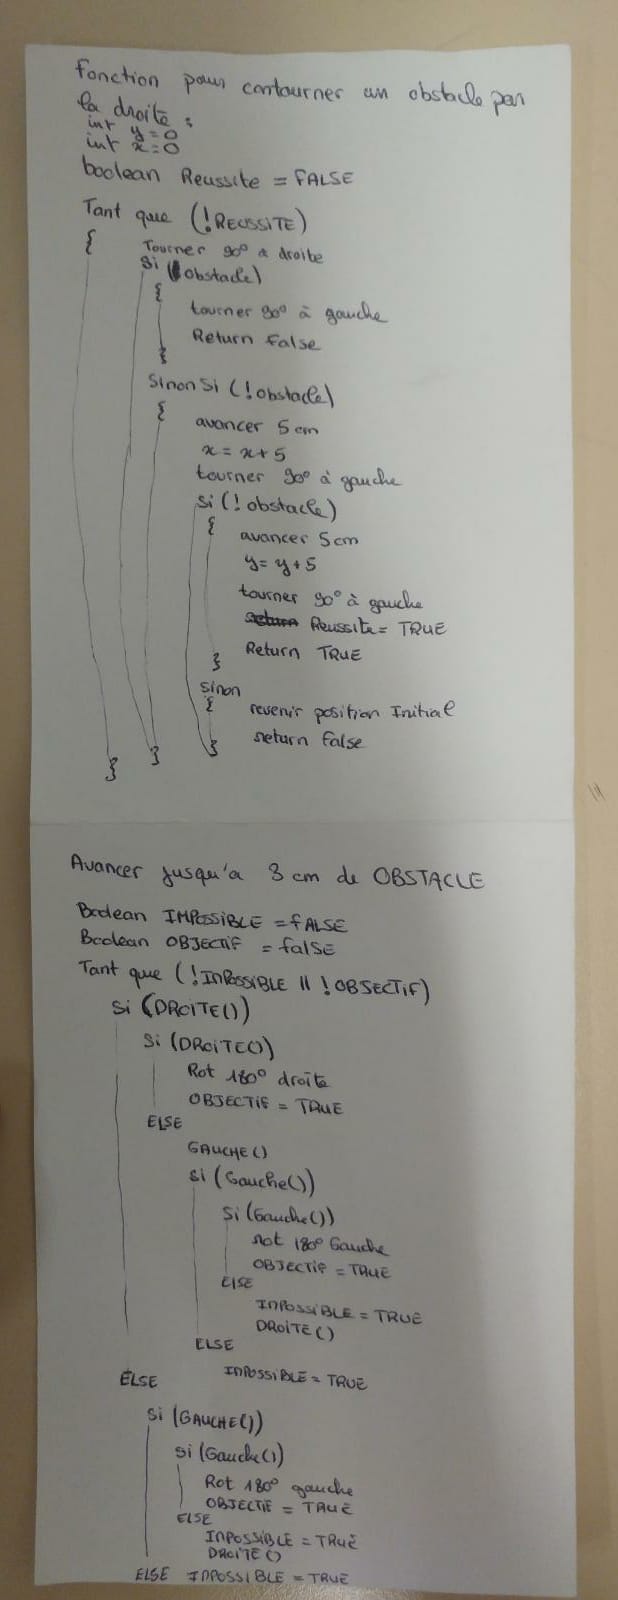 Fonction pour contourner un obstacle par
la droite :
int y = 0
int x = 0
boolean Reussite = FALSE
Tant que (!REUSSITE)
{ Tourner 90° a droite
si (obstacle)
{
tourner 90° à gauche
Return False
}
Sinon Si (!obstacle)
{
avancer 5 cm
x = x + 5
tourner 90° à gauche
si (!obstacle)
{
avancer 5 cm
y = y + 5
tourner 90° à gauche
Reussite = TRUE
Return TRUE
}
sinon
{
revenir position Initial
return False
}
}
}
Avancer jusqu'a 3 cm de OBSTACLE
Boolean IMPOSSIBLE = fALSE
Boolean OBJECTIF = falSE
Tant que (!IMPOSSIBLE || !OBJECTIF)
si (DROITE())
si (DROITE())
Rot 180° droite
OBJECTIF = TRUE
ELSE
GAUCHE()
si (Gauche())
si (Gauche())
rot 180° Gauche
OBJECTIF = TRUE
ELSE
IMPOSSIBLE = TRUE
DROITE()
ELSE
IMPOSSIBLE = TRUE
ELSE
si (GAUCHE())
si (Gauche())
Rot 180° gauche
OBJECTIF = TRUE
ELSE
IMPOSSIBLE = TRUE
DROITE()
ELSE IMPOSSIBLE = TRUE